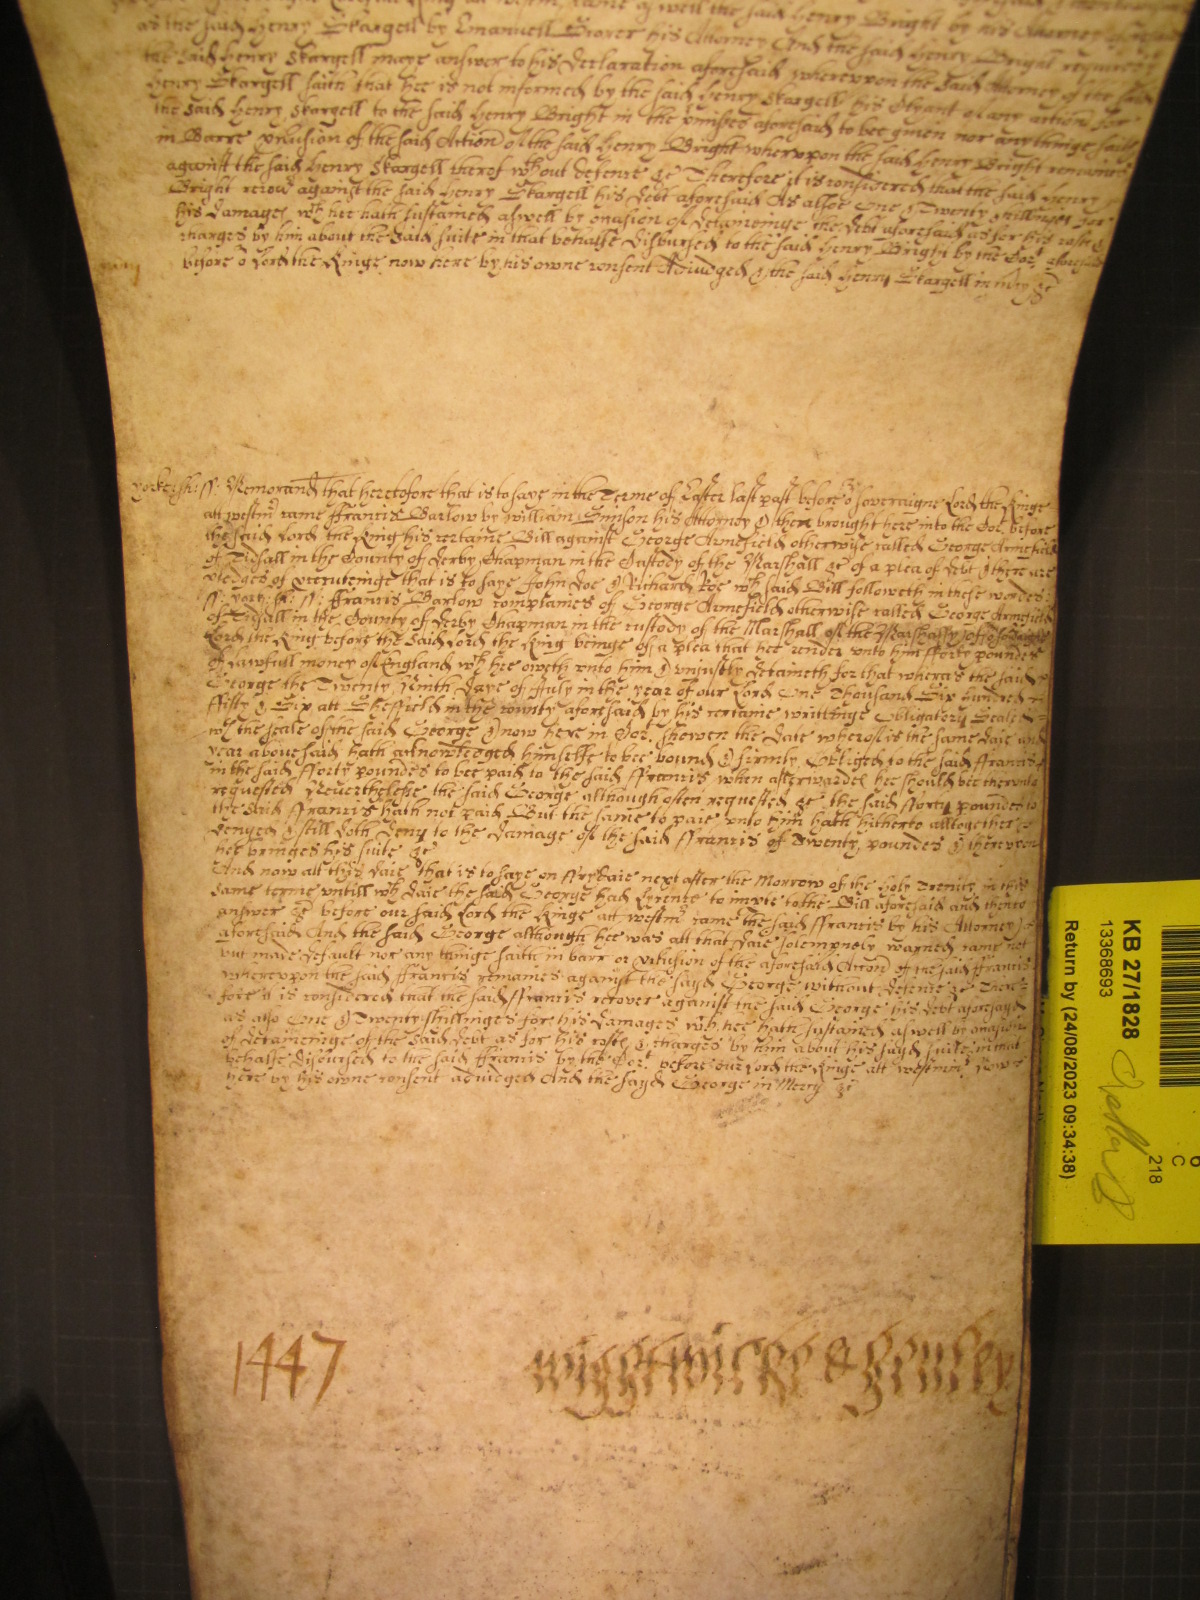 as the said Henry Skargell by Emanuell his Attorney And the said Henry Bright requireth
the said Henry Skargell maye answer to his declaration aforesaid wherevpon the said Attorney of the said
Henry Skargell saith that hee is not informed by the said Henry Skargell his Clyant of any action for
the said Henry Skargell to the said Henry Bright in the aforesaid to bee giuen nor anythinge saith
in Barre of the said Action of the said Henry Bright wherevpon the said Henry Bright remaines
against the said Henry Skargell therof wthout defence &c Therefore it is considered that the said Henry
Bright recou against the said Henry Skargell his debt aforesaid As alsoe One & Twenty shillinges for
his damages wch hee hath sustained aswell by occasion of deteineinge the debt aforesaid as for his costes &
charges by him about the said suite in that behalfe disbursed to the said Henry Bright by the Cort aforesaid
before o Lord the Kinge now here by his owne consent Adiudged & the said Henry Skargell in mcy &c
Yorkeshi ss: Memorand That heretofore that is to saye in the Terme of Easter last past before o soveraigne Lord the Kinge
att Westmr came ffrancis Barlow by William Simson his Attorney & there brought here into the Cor before
the said Lord the King his certaine Bill against George Armefield otherwise called George Armefield
of Tidsall in the County of Derby Chapman in the Custody of the Marshall &c of a plea of debt & there are
pledges of prosecuteinge that is to saye John Doe & Richard Roe wch said Bill followeth in these wordes:
ss: York: sh: ss: ffrancis Barlow complaines of George Armefield otherwise called George Armefield
of Tidsall in the County of Derby Chapman in the custody of the Marshall of the Marshalsy of o Soveraigne
Lord the King before the said Lord the King beinge of a plea that hee render vnto him fforty poundes
of lawfull money of England wch hee oweth vnto him & vniustly detaineth for that wheras the said
George the Twenty Ninth daye of July in the year of our Lord One Thousand Six hundred
ffifty & Six att Sheffeild in the county aforesaid by his certaine writtinge Obligatory Sealed
wth the seale of the said George & now here in Cort shewen the date wherof is the same daie and
year abouesaid hath acknowledged himselfe to bee bound & firmly Obliged to the said ffrancis
in the said fforty poundes to bee paid to the said ffrancis when afterwardes hee should bee therevnto
requested Neuerthelesse the said George although often requested &c the said fforty poundes to
the said ffrancis hath not paid But the same to paie vnto him hath hitherto alltogether
denyed & still doth deny to the damage of the said ffrancis of Twenty poundes & therevpon
hee bringes his suite &c
And now att this daie that is to saye on ffrydaie next after the Morrow of the holy Trenity in this
same terme vntill wch daie the said George had lycence to imparle to the Bill aforesaid and then to
answer &c before our said Lord the Kinge att Westmr came the said ffrancis by his Attorney
aforesaid And the said George although hee was att that daie solempnely warned came not
but made default nor any thinge saith in barr or of the aforesaid Accon of the said ffrancis
wherevpon the said ffrancis remaines against the sayd George without defence &c There
fore it is considered that the said ffrancis recover against the said George his debt aforesayd
as also One & Twenty shillinges for his damages wch hee hath sustained aswell by occasion
of detaineinge of the said debt as for his costes & charges by him about his sayd suite in that
behalfe disbursed to the said ffrancis by the Cort before our Lord the Kinge att Westmr now
here by his owne consent adiudged And the sayd George in Mercy &c
1447
Wightwicke &
KB 27/1828
13368693
Return by (24/08/2023 09:34:38)
218
C
6